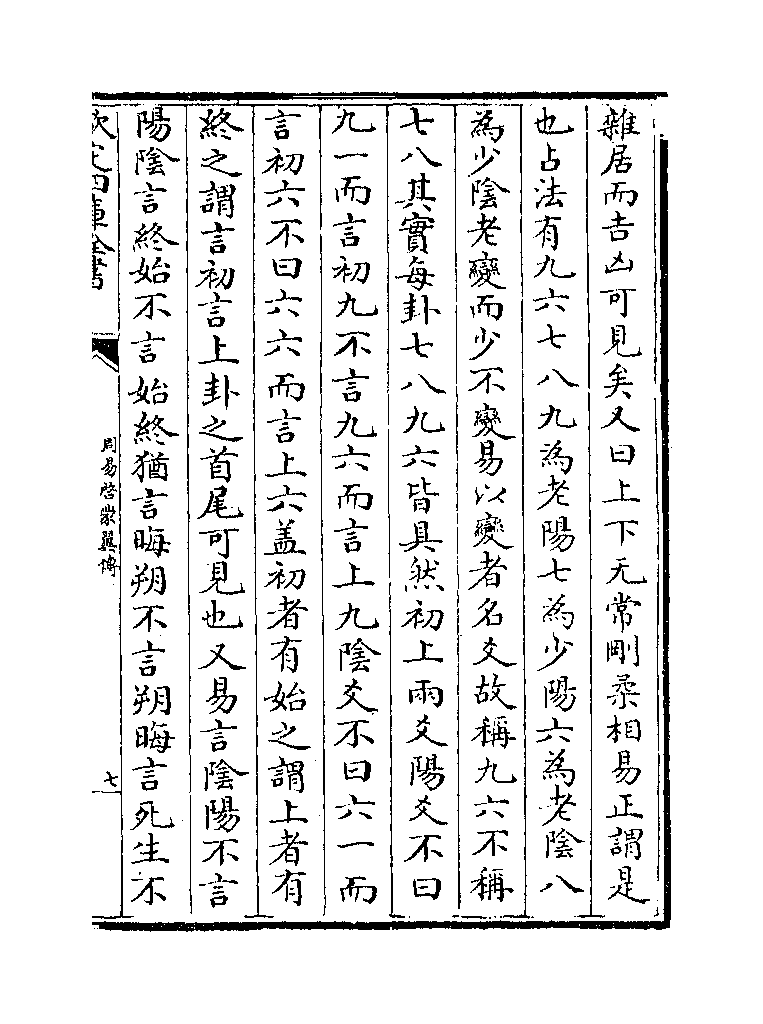 雜居而吉凶可見矣又曰上下无常剛柔相易正謂是
也占法有九六七八九為老陽七為少陽六為老陰八
為少陰老變而少不變易以變者名爻故稱九六不稱
七八其實每卦七八九六皆具然初上兩爻陽爻不曰
九一而言初九不言九六而言上九陰爻不曰六一而
言初六不曰六六而言上六盖初者有始之謂上者有
終之謂言初言上卦之首尾可見也又易言陰陽不言
陽陰言終始不言始終猶言晦朔不言朔晦言死生不
欽定四庫全書
周易啓蒙翼傳
七